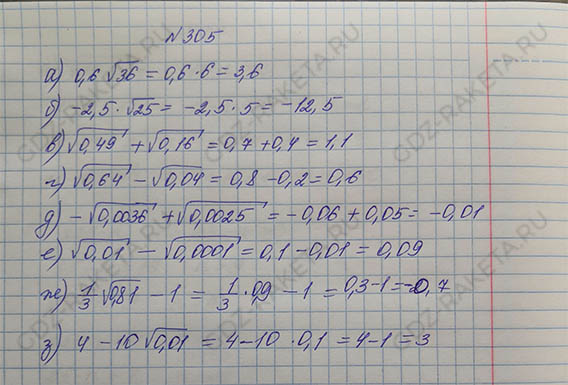 №305
а) 0,6 √36 = 0,6 · 6 = 3,6
б) -2,5 · √25 = -2,5 · 5 = -12,5
в) √0,49 + √0,16 = 0,7 + 0,4 = 1,1
г) √0,64 - √0,04 = 0,8 - 0,2 = 0,6
д) -√0,0036 + √0,0025 = -0,06 + 0,05 = -0,01
е) √0,01 - √0,0001 = 0,1 - 0,01 = 0,09
ж) 1/3 √0,81 - 1 = 1/3 · 0,9 - 1 = 0,3 - 1 = -0,7
з) 4 - 10 √0,01 = 4 - 10 · 0,1 = 4 - 1 = 3
GDZ-RAKETA.RU
GDZ-RAKETA.RU
GDZ-RAKETA.RU
GDZ-RAKETA.RU